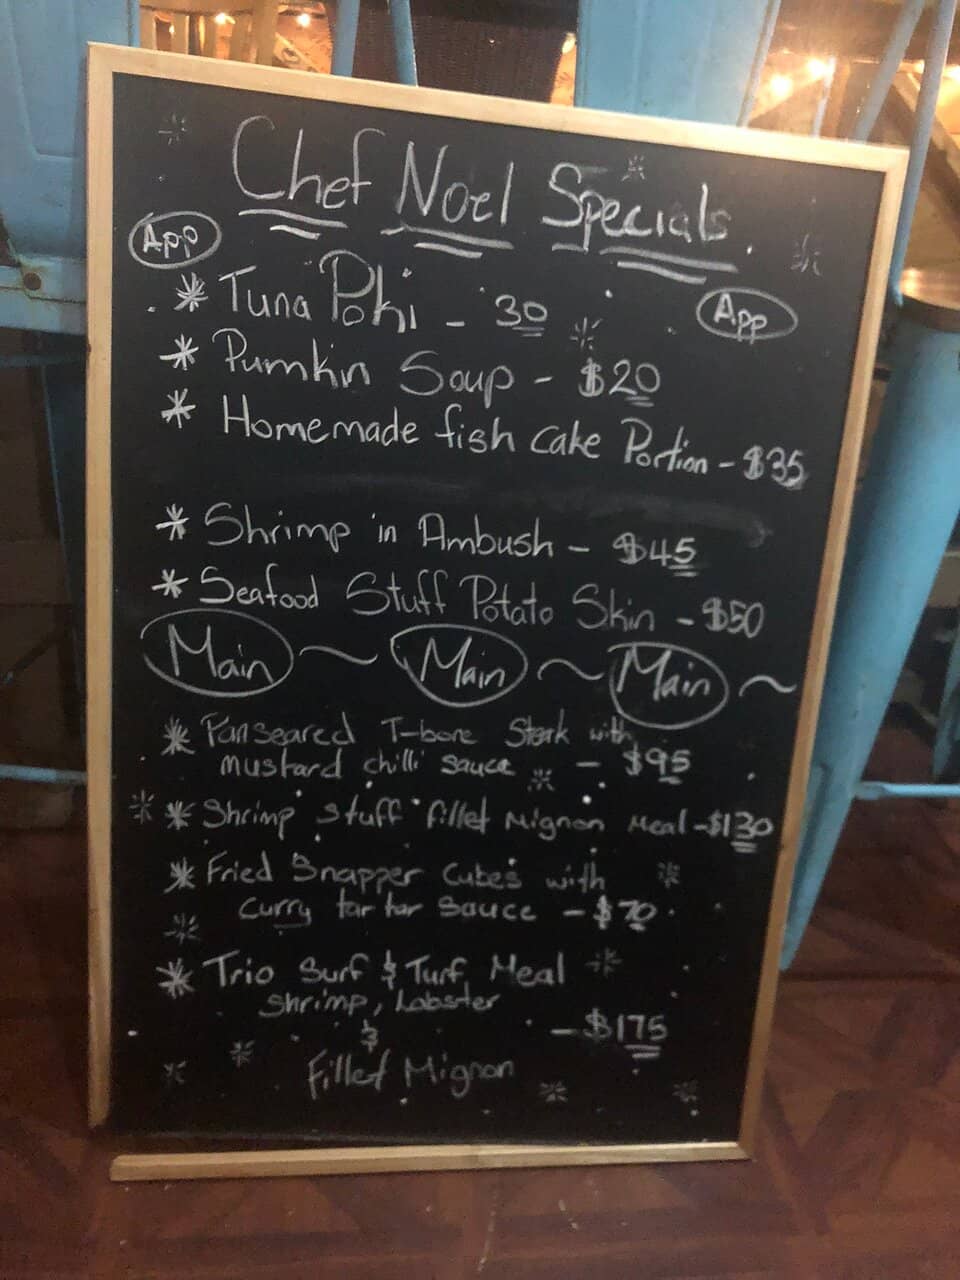 Chef Noel Specials.
App
* Tuna Pohi - 30
App
* Pumkin Soup - $20
* Homemade fish cake Portion - $35
* Shrimp in Ambush - $45
* Seafood Stuff Potato Skin - $50
Main ~ Main ~ Main ~
* Pan Seared T-bone Steak with
mustard chilli sauce - $95
* Shrimp stuff fillet Mignon Meal - $130
* Fried Snapper Cubes with
Curry tar tar Sauce - $70
* Trio Surf & Turf Meal
Shrimp, Lobster
&
- $175
Fillet Mignon